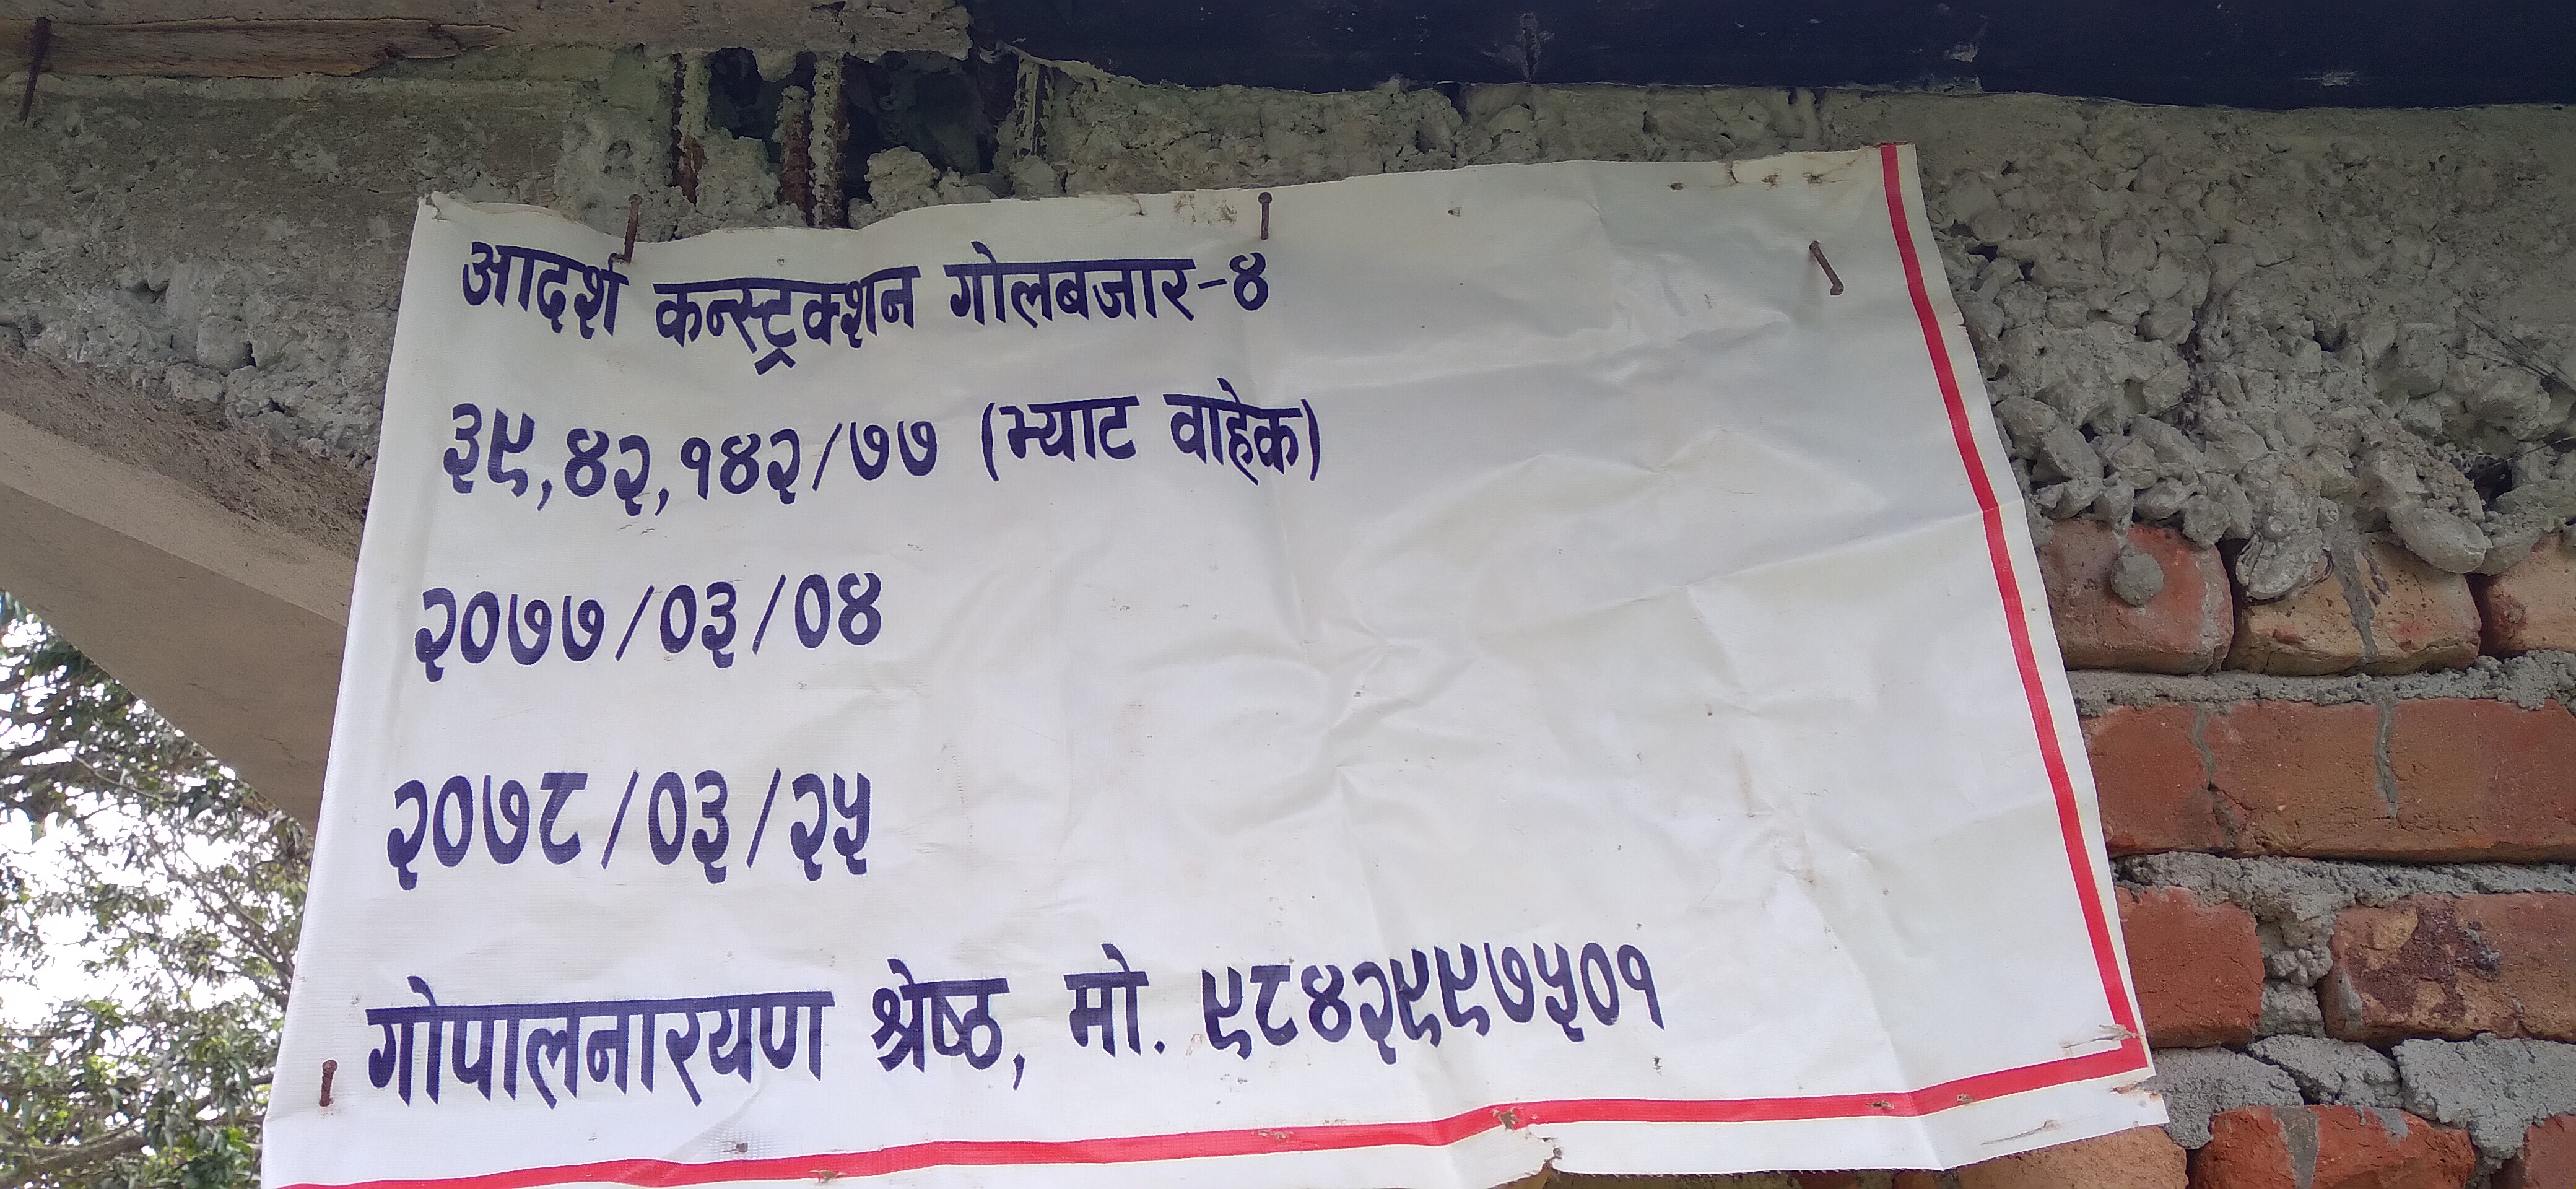 आदर्श कन्स्ट्रक्शन गोलबजार-४
३९,४२,१४२/७७ (भ्याट वाहेक)
२०७७/०३/०४
२०७८/०३/२५
गोपालनारयण श्रेष्ठ, मो. ९८४२९९७५०१